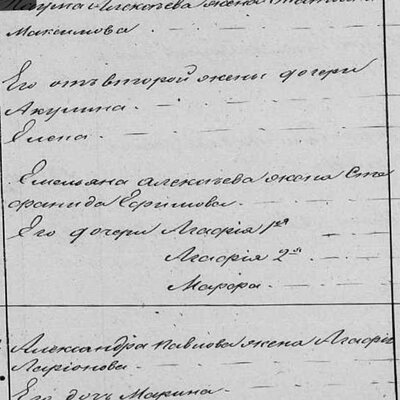 Наума Алексѣева жена Татьяна
Максимова.
Его отъ второй жены дочери
Акулина.
Елена.
Емельяна Алексѣева жена Сте
фанида Ефимова.
Его дочери Агафія 1ая
Агафія 2ая
Марфа.
Александра Павлова жена Агафія
Ларіонова.
Его дочь Макина